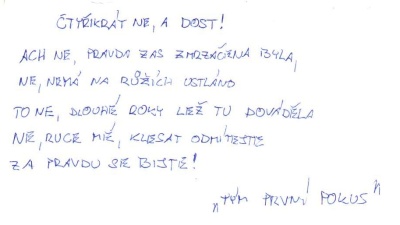 ČTYŘIKRÁT NE, A DOST!
ACH NE, PRAVDA ZAS ZMRZAČENA BYLA,
NE, NEMÁ NA RŮŽÍCH USTLÁNO
TO NE, DLOUHÉ ROKY LEŽ TU DOVÁDĚLA
NE, RUCE MÉ, KLESAT ODMÍTEJTE
ZA PRAVDU SE BIJTE!
"TÝM PRVNÍ POKUS"